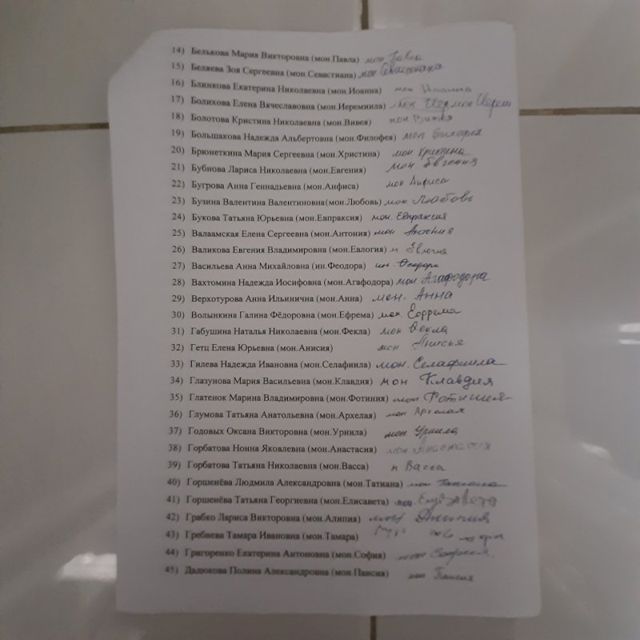 14) Белькова Мария Викторовна (мон.Павла) мон Павла
15) Беляева Зоя Сергеевна (мон.Севастиана) мон Севастиана
16) Блинкова Екатерина Николаевна (мон.Иовина) мон
17) Болихова Елена Вячеславовна (мон.Иеремиила)
18) Болотова Кристина Николаевна (мон.Вивея) мон
19) Большакова Надежда Альбертовна (мон.Филофея) мон
20) Брюнеткина Мария Сергеевна (мон.Христина) мон Христина
21) Бубнова Лариса Николаевна (мон.Евгения) мон Евгения
22) Бугрова Анна Геннадьевна (мон.Анфиса) мон Анфиса
23) Бузина Валентина Валентиновна(мон.Любовь) мон Любовь
24) Букова Татьяна Юрьевна (мон.Евпраксия) мон. Евпраксия
25) Валаамская Елена Сергеевна (мон.Антония) мон Антония
26) Валикова Евгения Владимировна (мон.Евлогия) м
27) Васильева Анна Михайловна (ин.Феодора) ин Феодора
28) Вахтомина Надежда Иосифовна (мон.Агафодора) мон Агафодора
29) Верхотурова Анна Ильинична (мон.Анна) мон. Анна
30) Волынкина Галина Фёдоровна (мон.Ефрема) мон Ефрема
31) Габушина Наталья Николаевна (мон.Фекла) мон Фекла
32) Гетц Елена Юрьевна (мон.Анисия) мон
33) Гилева Надежда Ивановна (мон.Селафиила) мон. Селафиила
34) Глазунова Мария Васильевна (мон.Клавдия) мон Клавдия
35) Глатенок Марина Владимировна (мон.Фотиния) мон Фотиния
36) Глумова Татьяна Анатольевна (мон.Архелая) мон Архелая
37) Годовых Оксана Викторовна (мон.Уриила) мон Уриила
38) Горбатова Нонна Яковлевна (мон.Анастасия) мон Анастасия
39) Горбатова Татьяна Николаевна (мон.Васса) м Васса
40) Горшенёва Людмила Александровна (мон.Татиана) мон Татиана
41) Горшенёва Татьяна Георгиевна (мон.Елисавета) мон. Елизавета
42) Грабко Лариса Викторовна (мон.Алипия) мон Алипия
43) Гребнева Тамара Ивановна (мон.Тамара)
44) Григоренко Екатерина Антоновна (мон.София) мон София
45) Дадюкова Полина Александровна (мон.Паисия) мон Паисия